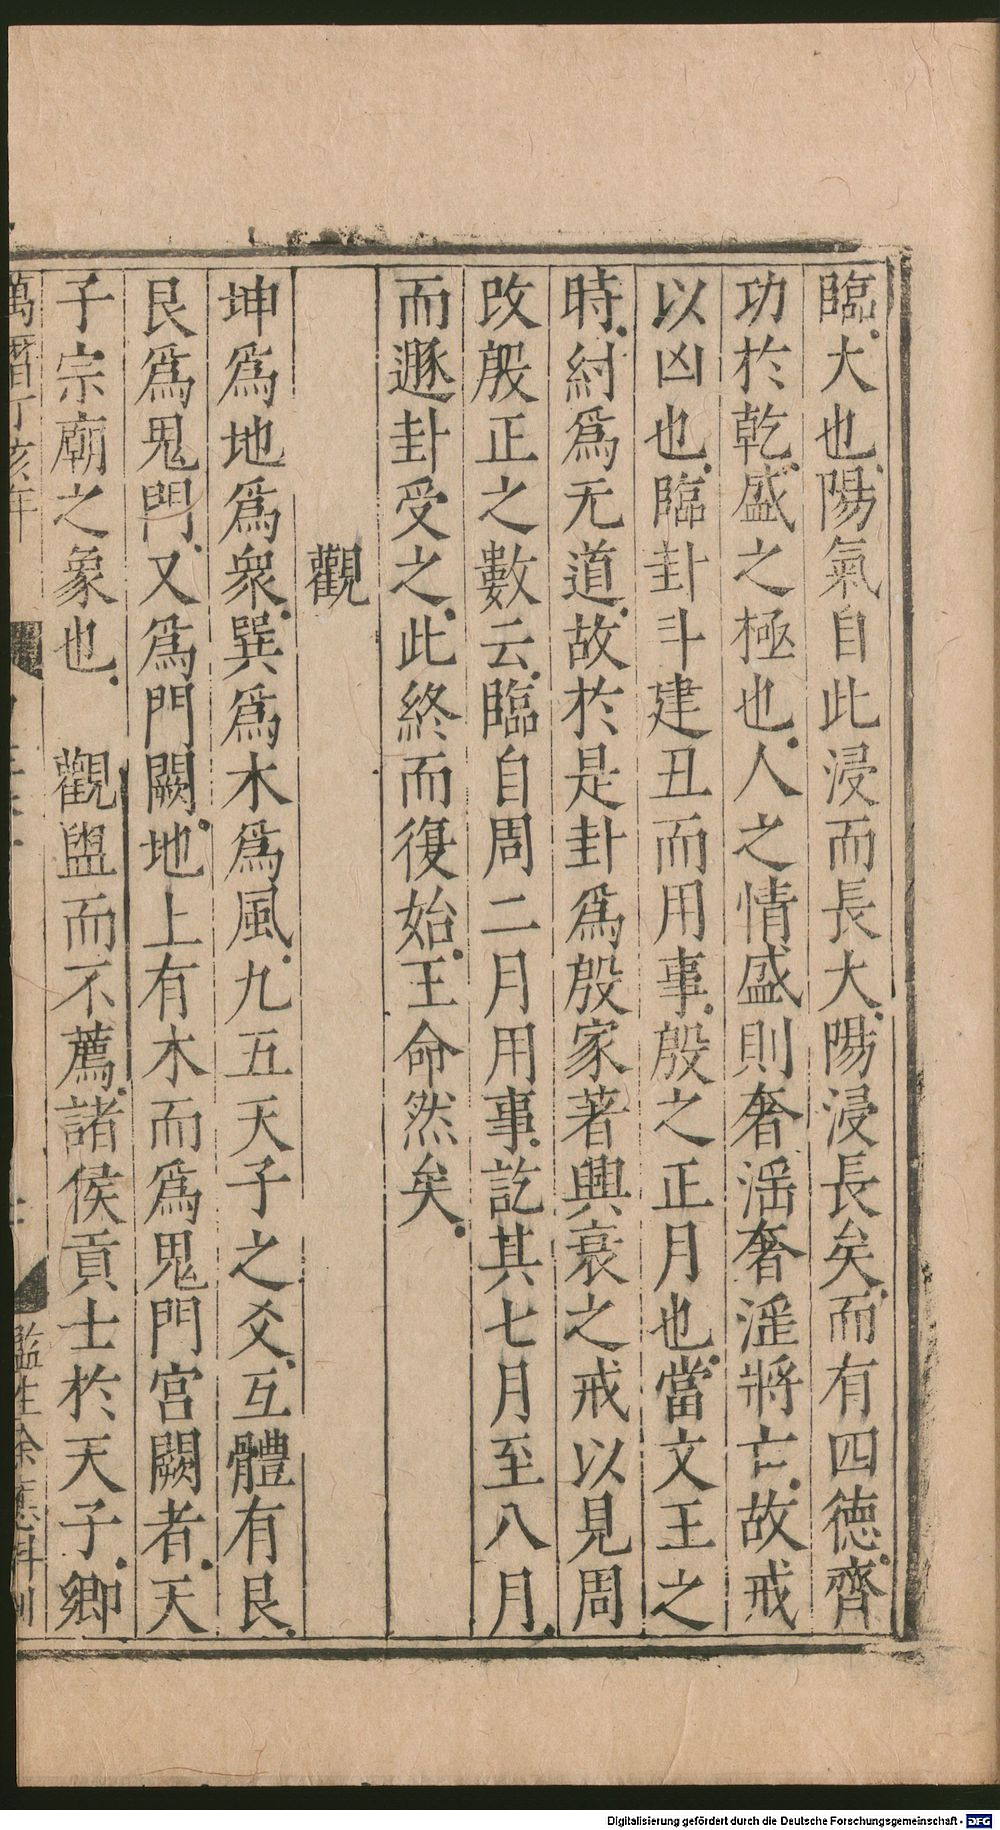 臨大也陽氣自此浸而長大陽浸長矣而有四德齊
功於乾盛之極也人之情盛則奢淫奢淫將亡故戒
以凶也臨卦斗建丑而用事殷之正月也當文王之
時紂爲无道故於是卦爲殷家著興衰之戒以見周
改殷正之數云臨自周二月用事訖其七月至八月
而遯卦受之此終而復始王命然矣
觀
坤爲地爲衆巽爲木爲風九五天子之爻互體有艮
艮爲鬼門又爲門闕地上有木而爲鬼門宮闕者天
子宗廟之象也 觀盥而不薦諸侯貢士於天子卿
萬曆丁亥年
監生余應科刊
Digitalisierung gefördert durch die Deutsche Forschungsgemeinschaft - DFG